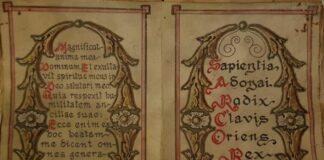 Magnificat
anima mea
Dominum Et exulta
vit spiritus meus in
Deo salutari meo
Quia respexit hu
militatem an
cillae suae:
Ecce enim ex
doc beatam
me dicent om
nes genera
Sapientia,
Adonai,
Radix
Clavis
Oriens,
Rex